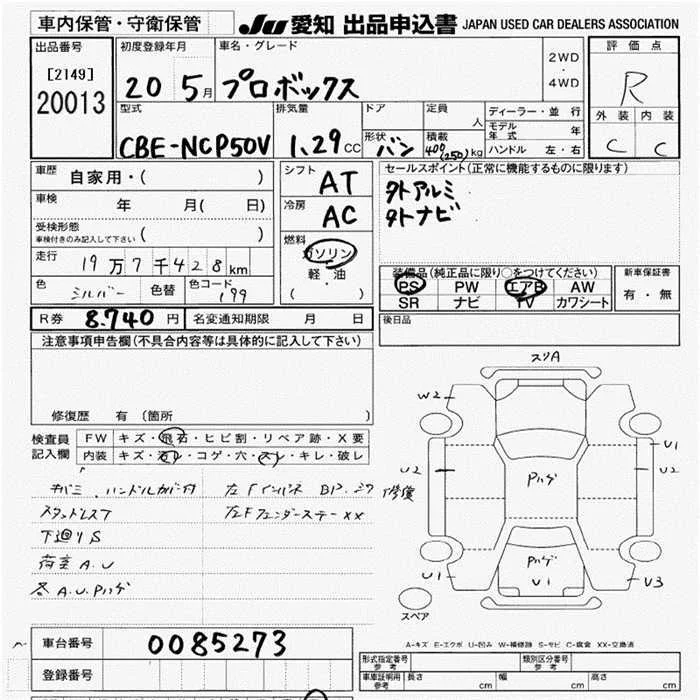 車内保管・守衛保管 JU 愛知 出品申込書 JAPAN USED CAR DEALERS ASSOCIATION
出品番号 初度登録年月 車名・グレード 評価点
[2149] 20 5月 プロボックス 2WD・4WD R
20013 外装 内装
型式 排気量 ドア 定員 人 ディーラー・並行 C C
CBE-NCP50V 1.29CC 形状 バン 積載 400(250)kg モデル年式 年
ハンドル 左・右
車歴 自家用・( ) シフト AT セールスポイント(正常に機能するものに限ります)
車検 年 月( 日) 冷房 AC 外アルミ
受検形態 外ナビ
車検付きのみ記入して下さい ( )
走行 19万7千428km 燃料 ガソリン
軽・油
( )
装備品(純正品に限り○をつけてください) 新車保証書
PS PW エアB AW 有・無
SR ナビ TV カワシート
色 シルバー 色替 色コード 199
R券 8.740円 名変通知期限 月 日 後日品
注意事項申告欄(不具合内容等は具体的に記入して下さい)
修復歴 有 (箇所 )
検査員 FW キズ・飛石・ヒビ割・リペア跡・X要
記入欄 内装 キズ・汚レ・コゲ・穴・スレ・キレ・破レ
キバミ、ハンドルカバー付
スタッドレス
下廻りS
荷室A.U
スリA
W2
U1
U2
U2
Pハゲ
Pハゲ
U1
U1
U3
スペア
A-キズ E-エクボ U-凹み W-補修跡 S-サビ C-腐食 XX-交換済
車台番号 0085273
登録番号
形式指定番号 参考 類別区分番号 参考
車庫証明用 参考 長さ cm 幅 cm 高さ cm